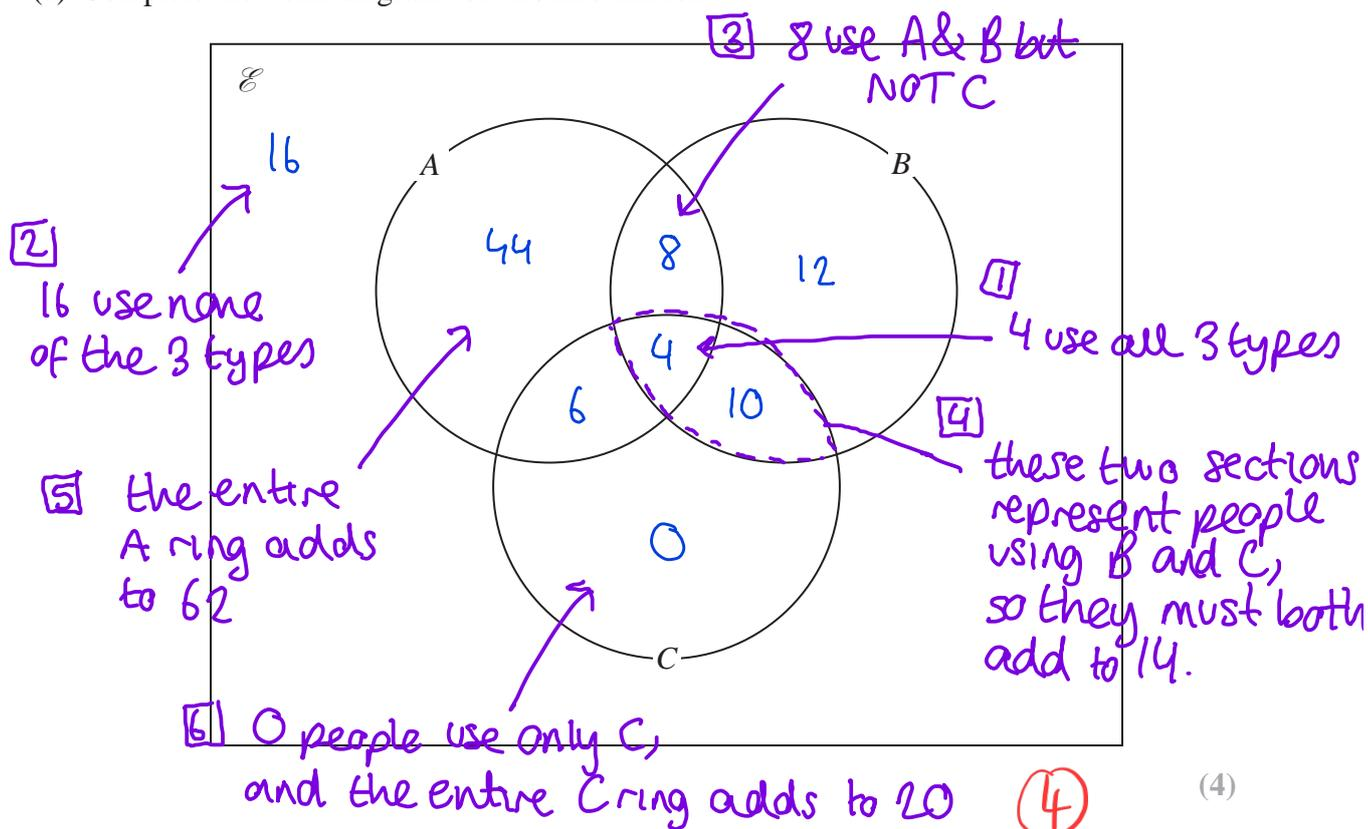 3 8 use A & B but
NOT C
ℰ
16
A
B
44
8
12
2
16 use none
of the 3 types
1
4 use all 3 types
4
6
10
4
these two sections
represent people
using B and C,
so they must both
add to 14.
5 the entire
A ring adds
to 62
0
C
6 0 people use only C,
and the entire C ring adds to 20
4
(4)